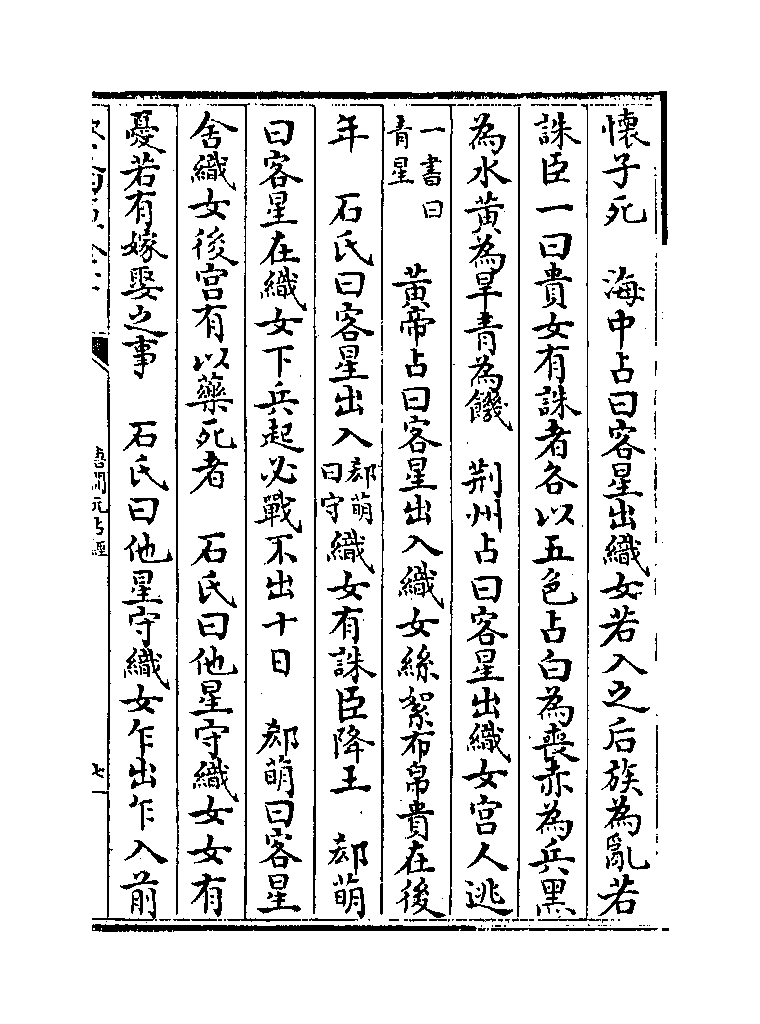 懐子死　海中占曰客星出織女若入之后族為亂若
誅臣一曰貴女有誅者各以五色占白為喪赤為兵黑
為水黄為旱青為饑　荆州占曰客星出織女宫人逃
一書曰青星　黄帝占曰客星出入織女絲絮布帛貴在後
年　石氏曰客星出入郄萌曰守織女有誅臣降王　郄萌
曰客星在織女下兵起必戰不出十日　郄萌曰客星
舍織女後宫有以藥死者　石氏曰他星守織女女有
憂若有嫁娶之事　石氏曰他星守織女乍出乍入前
唐開元占經
七